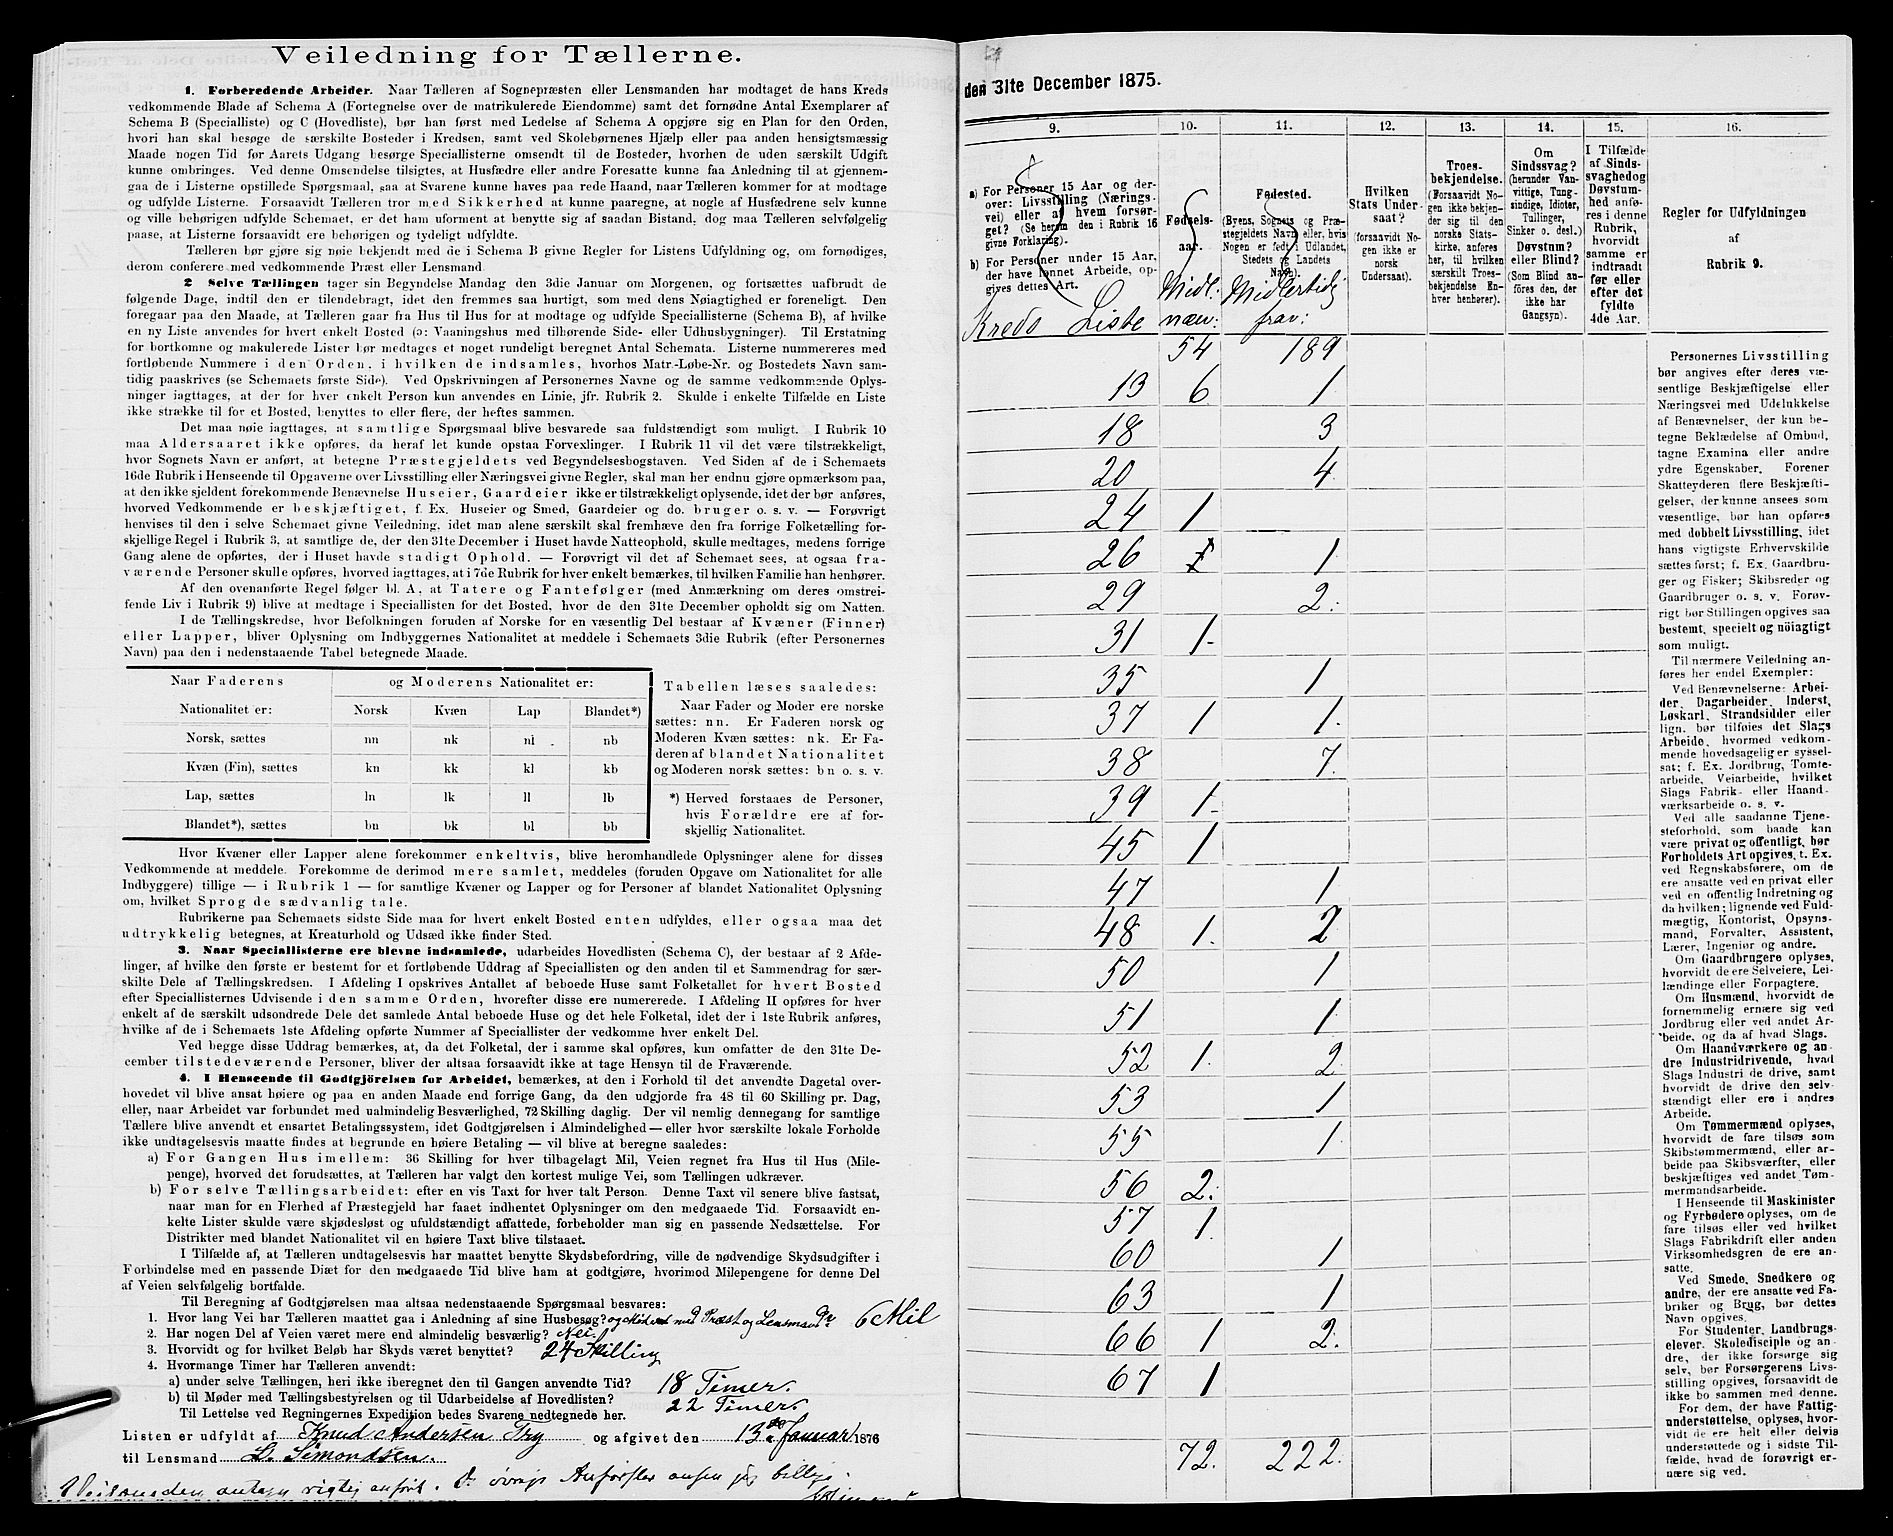 Veiledning for Tællerne.
1. Forberedende Arbeider. Naar Tælleren af Sognepræsten eller Lensmanden har modtaget de hans Kreds
vedkommende Blade af Schema A (Fortegnelse over de matrikulerede Eiendomme) samt det fornødne Antal Exemplarer af
Schema B (Specialliste) og C (Hovedliste), bør han først med Ledelse af Schema A opgjøre sig en Plan for den Orden,
hvori han skal besøge de særskilte Bosteder i Kredsen, samt ved Skolebørnenes Hjælp eller paa anden hensigtsmæssig
Maade nogen Tid før Aarets Udgang besørge Speciallisterne omsendt til de Bosteder, hvorhen de uden særskilt Udgift
kunne ombringes. Ved denne Omsendelse tilsigtes, at Husfædre eller andre Foresatte kunne faa Anledning til at gjennem-
gaa de i Listerne opstillede Spørgsmaal, saa at Svarene kunne haves paa rede Haand, naar Tælleren kommer for at modtage
og udfylde Listerne. Forsaavidt Tælleren tror med Sikkerhed at kunne paaregne, at nogle af Husfædrene selv kunne
og ville behørigen udfylde Schemaet, er det ham uforment at benytte sig af saadan Bistand, dog maa Tælleren selvfølgelig
paase, at Listerne forsaavidt ere behørigen og tydeligt udfyldte.
Tælleren bør gjøre sig nøie bekjendt med de i Schema B givne Regler for Listens Udfyldning og, om fornødiges,
derom conferere med vedkommende Præst eller Lensmand
2 Selve Tællingen tager sin Begyndelse Mandag den 3die Januar om Morgenen, og fortsættes uafbrudt de
følgende Dage, indtil den er tilendebragt, idet den fremmes saa hurtigt, som med dens Nøiagtighed er foreneligt. Den
foregaar paa den Maade, at Tælleren gaar fra Hus til Hus for at modtage og udfylde Speciallisterne (Schema B), af hvilke
en ny Liste anvendes for hvert enkelt Bosted (ɔ: Vaaningshus med tilhørende Side- eller Udhusbygninger). Til Erstatning
for bortkomne og makulerede Lister bør medtages et noget rundeligt beregnet Antal Schemata. Listerne nummereres med
fortløbende Nummere i den Orden, i hvilken de indsamles, hvorhos Matr.-Løbe-Nr. og Bostedets Navn sam-
tidig paaskrives (se Schemaets første Side). Ved Opskrivningen af Personernes Navne og de samme vedkommende Oplys-
ninger iagttages, at der for hver enkelt Person kun anvendes en Linie, jfr. Rubrik 2. Skulde i enkelte Tilfælde en Liste
ikke strække til for et Bosted, benyttes to eller flere, der heftes sammen.
Det maa nøie iagttages, at samtlige Spørgsmaal blive besvarede saa fuldstændigt som muligt. I Rubrik 10
maa Aldersaaret ikke opføres, da heraf let kunde opstaa Forvexlinger. I Rubrik 11 vil det være tilstrækkeligt,
hvor Sognets Navn er anført, at betegne Præstegjeldets ved Begyndelsesbogstaven. Ved Siden af de i Schemaets
16de Rubrik i Henseende til Opgaverne over Livsstilling eller Næringsvei givne Regler, skal man her endnu gjøre opmærksom paa,
at den ikke sjeldent forekommende Benævnelse Huseier, Gaardeier ikke er tilstrækkeligt oplysende, idet der bør anføres,
hvorved Vedkommende er beskjæftiget, f. Ex. Huseier og Smed, Gaardeier og do. bruger o. s. v. — Forøvrigt
henvises til den i selve Schemaet givne Veiledning, idet man alene særskilt skal fremhæve den fra forrige Folketælling for-
skjellige Regel i Rubrik 3, at samtlige de, der den 31te December i Huset havde Natteophold, skulle medtages, medens forrige
Gang alene de opførtes, der i Huset havde stadigt Ophold. — Forøvrigt vil det af Schemaet sees, at ogsaa fra-
værende Personer skulle opføres, hvorved iagttages, at i 7de Rubrik for hver enkelt bemærkes, til hvilken Familie han henhører.
Af den ovenanførte Regel følger bl. A. at Tatere og Fantefølger (med Anmærkning om deres omstrei-
fende Liv i Rubrik 9) blive at medtage i Speciallisten for det Bosted, hvor de den 31te December opholdt sig om Natten.
I de Tællingskredse, hvor Befolkningen foruden af Norske for en væsentlig Del bestaar af Kvæner (Finner)
eller Lapper, bliver Oplysning om Indbyggernes Nationalitet at meddele i Schemaets 3die Rubrik (efter Personernes
Navn) paa den i nedenstaaende Tabel betegnede Maade.
Naar Faderens og Moderens Nationalitet er:
Nationalitet er: Norsk Kvæn Lap Blandet*)
Norsk, sættes nn nk nl nb
Kvæn (Fin), sættes kn kk kl kb
Lap, sættes ln lk ll lb
Blandet*), sættes bn bk bl bb
Tabellen læses saaledes:
Naar Fader og Moder ere norske
sættes: nn. Er Faderen norsk og
Moderen Kvæn sættes: nk. Er Fa-
deren af blandet Nationalitet
og Moderen norsk sættes: bn o. s. v.
*) Herved forstaaes de Personer,
hvis Forældre ere af for-
skjellig Nationalitet.
Hvor Kvæner eller Lapper alene forekommer enkeltvis, blive heromhandlede Oplysninger alene for disses
Vedkommende at meddele. Forekomme de derimod mere samlet, meddeles (foruden Opgave om Nationalitet for alle
Indbyggere) tillige — i Rubrik 1 — for samtlige Kvæner og Lapper og for Personer af blandet Nationalitet Oplysning
om, hvilket Sprog de sædvanlig tale.
Rubrikerne paa Schemaets sidste Side maa for hvert enkelt Bosted enten udfyldes, eller ogsaa maa det
udtrykkelig betegnes, at Kreaturhold og Udsæd ikke finder Sted.
3. Naar Speciallisterne ere blevne indsamlede, udarbeides Hovedlisten (Schema C), der bestaar af 2 Afde-
linger, af hvilke den første er bestemt for et fortløbende Uddrag af Speciallisten og den anden til et Sammendrag for sær-
skilte Dele af Tællingskredsen. I Afdeling I opskrives Antallet af beboede Huse samt Folketallet for hvert Bosted
efter Speciallisternes Udvisende i den samme Orden, hvorefter disse ere numererede. I Afdeling II opføres for hver
enkelt af de særskilt udsondrede Dele det samlede Antal beboede Huse og det hele Folketal, idet der i 1ste Rubrik anføres,
hvilke af de i Schemaets 1ste Afdeling opførte Nummer af Speciallister der vedkomme hver enkelt Del.
Ved begge disse Uddrag bemærkes, at, da det Folketal, der i samme skal opføres, kun omfatter de den 31te De-
cember tilstedeværende Personer, bliver der altsaa forsaavidt ikke at tage Hensyn til de Fraværende.
4. I Henseende til Godtgjörelsen for Arbeidet, bemærkes, at den i Forhold til det anvendte Dagetal over-
hovedet vil blive ansat høiere og paa en anden Maade end forrige Gang, da den udgjorde fra 48 til 60 Skilling pr. Dag,
eller, naar Arbeidet var forbundet med ualmindelig Besværlighed, 72 Skilling daglig. Der vil nemlig dennegang for samtlige
Tællere blive anvendt et ensartet Betalingssystem, idet Godtgjørelsen i Almindelighed — eller hvor særskilte lokale Forholde
ikke undtagelsesvis maatte findes at begrunde en høiere Betaling — vil blive at beregne saaledes:
a) For Gangen Hus imellem: 36 Skilling for hver tilbagelagt Mil, Veien regnet fra Hus til Hus (Mile-
penge), hvorved det forudsættes, at Tælleren har valgt den kortest mulige Vei, som Tællingen udkræver.
b) For selve Tællingsarbeidet: efter en vis Taxt for hver talt Person. Denne Taxt vil senere blive fastsat,
naar man for en Flerhed af Præstegjeld har faaet indhentet Oplysninger om den medgaaede Tid. Forsaavidt en-
kelte Lister skulde være skjødesløst og ufuldstændigt affattede, forbeholder man sig en passende Nedsættelse. For
Distrikter med blandet Nationalitet vil en høiere Taxt blive tilstaaet.
I Tilfælde af, at Tælleren undtagelsesvis har maattet benytte Skydsbefordring, ville de nødvendige Skydsudgifter i
Forbindelse med en passende Diæt for den medgaaede Tid blive ham at godtgjøre, hvorimod Milepengene for denne Del
af Veien selvfølgelig bortfalde.
Til Beregning af Godtgjørelsen maa altsaa nedenstaaende Spørgsmaal besvares:
1. Hvor lang Vei har Tælleren maattet gaa i Anledning af sine Husbesøg? og Mødet med Præst og Lensmand 6 Mil
2. Har nogen Del af Veien været mere end almindelig besværlig? Nei.
3. Hvorvidt og for hvilket Beløb har Skyds været benyttet? 24 Skilling
4. Hvormange Timer har Tælleren anvendt:
a) under selve Tællingen, heri ikke iberegnet den til Gangen anvendte Tid? 18 Timer.
b) til Møder med Tællingsbestyrelsen og til Udarbeidelse af Hovedlisten? 22 Timer.
Til Lettelse ved Regningernes Expedition bedes Svarene nedtegnede her.
Listen er udfyldt af Knud Andersen Try og afgivet den 13de Januar 1876
til Lensmand L. Simondsen.
Veilængden antagen rigtig anført.
den 31te December 1875.
9. 10. 11. 12. 13. 14. 15. 16.
a) For Personer 15 Aar og der-
over: Livsstilling (Nærings-
vei) eller af hvem forsør-
get? (Se herom den i Rubrik 16
givne Forklaring).
b) For Personer under 15 Aar,
der have lønnet Arbeide, op-
gives dettes Art.
Fødsels-
aar.
Fødested.
(Byens, Sognets og Præ-
stegjeldets Navn, eller, hvis
Nogen er født i Udlandet,
Stedets og Landets
Navn).
Hvilken
Stats Under-
saat?
(forsaavidt No-
gen ikke er
norsk
Undersaat).
Troes-
bekjendelse.
(Forsaavidt No-
gen ikke bekjen-
der sig til den
norske Stats-
kirke, anføres
her, til hvilken
særskilt Troes-
bekjendelse En-
hver henhører).
Om
Sindssvag?
(herunder Van-
vittige, Tung-
sindige, Idioter,
Tullinger,
Sinker o. desl.)
Døvstum?
eller Blind?
(Som Blind an-
føres den, der
ikke har
Gangsyn).
I Tilfælde
af Sinds-
svaghed og
Døvstum-
hed anfø-
res i denne
Rubrik,
hvorvidt
samme er
indtraadt
før eller
efter det
fyldte
4de Aar.
Regler for Udfyldningen
af
Rubrik 9.
Kreds Liste Midl: næv: Midlertidig frav:
54 189
13 6 1
18 3
20 4
24 1
26 1 1
29 2.
31 1
35 1
37 1 1.
38 7.
39 1
45 1
47 1
48 1. 2
50 1
51 1
52 1. 2
53 1
55 1.
56 2.
57 1.
60 1
63 1
66 1 2.
67 1
72. 222.
Personernes Livsstilling
bør angives efter deres væ-
sentlige Beskjæftigelse eller
Næringsvei med Udelukkelse
af Benævnelser, der kun be-
tegne Beklædelse af Ombud,
tagne Examina eller andre
ydre Egenskaber. Forener
Skatteyderen flere Beskjæfti-
gelser, der kunne ansees som
væsentlige, bør han opføres
med dobbelt Livsstilling, idet
hans vigtigste Erhvervskilde
sættes først; f. Ex. Gaardbru-
ger og Fisker; Skibsreder og
Gaardbruger o. s. v. Forøv-
rigt bør Stillingen opgives saa
bestemt, specielt og nöiagtigt
som muligt.
Til nærmere Veiledning an-
føres her endel Exempler:
Ved Benævnelserne: Arbei-
der, Dagarbeider, Inderst,
Løskarl, Strandsidder eller
lign. bør tilføies det Slags
Arbeide, hvormed vedkom-
mende hovedsagelig er syssel-
sat; f. Ex. Jordbrug, Tomte-
arbeide, Veiarbeide, hvilket
Slags Fabrik- eller Haand-
værksarbeide o. s. v.
Ved alle saadanne Tjene-
steforhold, som baade kan
være privat og offentligt, bør
Forholdets Art opgives, f. Ex.
ved Regnskabsførere, om de
ere ansatte ved en privat eller
ved en offentlig Indretning og
da hvilken; lignende ved Fuld-
mægtig, Kontorist, Opsyns-
mand, Forvalter, Assistent,
Lærer, Ingeniør og andre.
Om Gaardbrugere oplyses,
hvorvidt de ere Selveiere, Lei-
lændinge eller Forpagtere.
Om Husmænd, hvorvidt de
fornemmelig ernære sig ved
Jordbrug eller ved andet Ar-
beide, og da af hvad Slags.
Om Haandværkere og an-
dre Industridrivende, hvad
Slags Industri de drive, samt
hvorvidt de drive den selv-
stændigt eller ere i andres
Arbeide.
Om Tømmermænd oplyses,
hvorvidt de fare tilsøs som
Skibstømmermænd, eller ar-
beide paa Skibsværfter, eller
beskjæftiges ved andet Tøm-
mermandsarbeide.
I Henseende til Maskinister
og Fyrbødere oplyses, om de
fare tilsøs eller ved hvilket
Slags Fabrikdrift eller anden
Virksomhedsgren de ere an-
satte.
Ved Smede, Snedkere og
andre, der ere ansatte ved Fa-
briker og Brug, bør dettes
Navn opgives.
For Studenter, Landbrugs-
elever, Skoledisciple og an-
dre, der ikke forsørge sig
selv, bør Forsørgerens Livs-
stilling opgives, forsaavidt de
ikke bo sammen med denne.
For dem, der have Fattig-
understøttelse, oplyses, hvor-
vidt de ere helt eller delvis
understøttede og i sidste Til-
fælde, hvad de forøvrigt er-
nære sig ved.